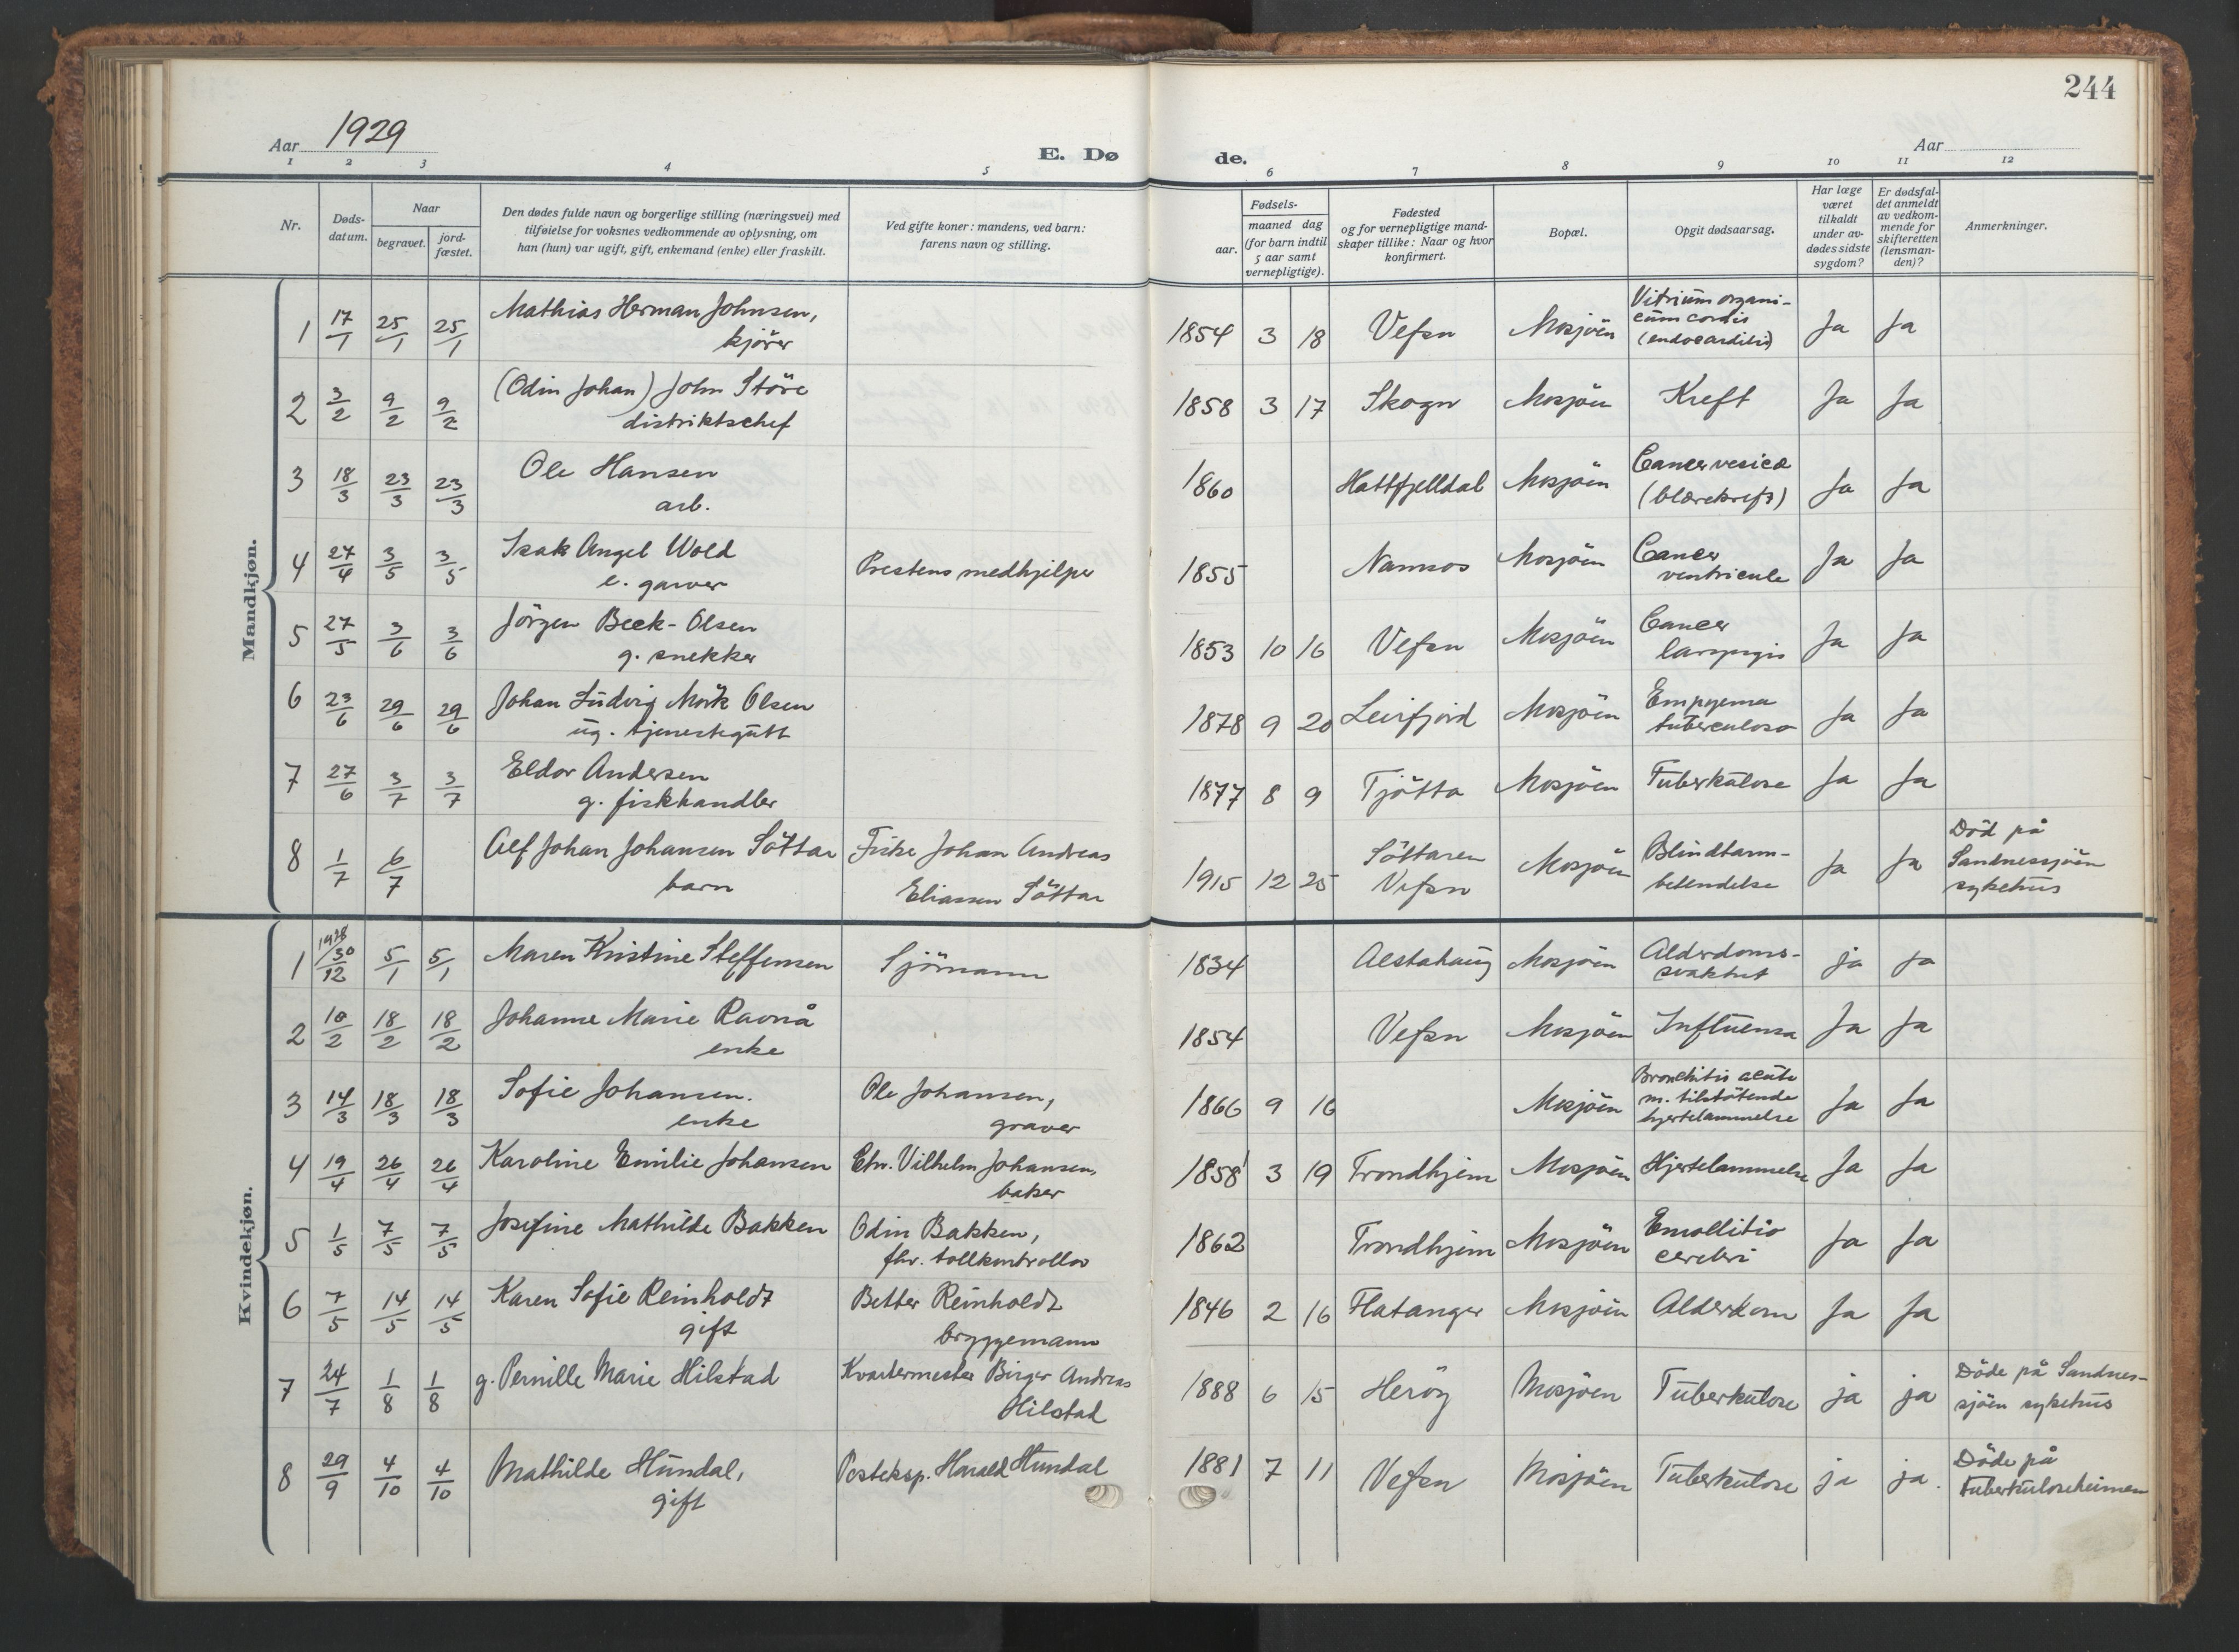 244
Aar 1929
E. Dø
de.
Aar
1 2 3 4 5 6 7 8 9 10 11 12
Nr.
Døds-
datum.
Naar
begravet.
jord-
fæstet.
Den dødes fulde navn og borgerlige stilling (næringsvei) med
tilføielse for voksnes vedkommende av oplysning, om
han (hun) var ugift, gift, enkemand (enke) eller fraskilt.
Ved gifte koner: mandens, ved barn:
farens navn og stilling.
Fødsels-
aar.
maaned dag
(for barn indtil
5 aar samt
vernepligtige).
Fødested
og for vernepligtige mand-
skaper tillike: Naar og hvor
konfirmert.
Bopæl.
Opgit dødsaarsag.
Har læge
været
tilkaldt
under av-
dødes sidste
sygdom?
Er dødsfal-
det anmeldt
av vedkom-
mende for
skifteretten
(lensman-
den)?
Anmerkninger.
Mandkjøn.
1 17/1 25/1 25/1 Mathias Herman Johnsen,
kjører
1854 3 18 Vefsn Mosjöen Vitrium organi-
cum cordis
(endocarditis) Ja Ja
2 3/2 9/2 9/2 (Odin Johan) John Störe
distriktschef
1858 3 17 Skogn Mosjöen Kreft Ja Ja
3 18/3 23/3 23/3 Ole Hansen
arb.
1860 Hattfjelldal Mosjöen Cancer vesicæ
(blærekreft) Ja Ja
4 27/4 3/5 3/5 Isak Angel Wold
e. garver
Prestens medhjelper
1855 Namsos Mosjöen Cancer
ventricule Ja Ja
5 27/5 3/6 3/6 Jörgen Beck-Olsen
g. snekker
1853 10 16 Vefsn Mosjöen Cancer
laryngis Ja Ja
6 23/6 29/6 29/6 Johan Ludvig Mörk Olsen
ug. tjenestegutt
1878 9 20 Leirfjord Mosjöen Empyema
tuberculosa Ja Ja
7 27/6 3/7 3/7 Eldor Andersen
g. fiskhandler
1877 8 9 Tjötta Mosjöen Tuberkulose Ja Ja
8 1/7 6/7 Alf Johan Johansen Söttar
barn
Fisker Johan Andreas
Eliassen Söttar
1915 12 25 Söttaren
Vefsn Mosjöen Blindtarm-
betendelse Ja Ja
Död på
Sandnessjöen
sykehus
Kvindekjøn.
1 1928 30/12 5/1 5/1 Maren Kristine Steffensen
Sjömann
1834 Alstahaug Mosjöen Alderdoms-
svakhet ja ja
2 10/2 18/2 18/2 Johanne Marie Ravnå
enke
1854 Vefsn Mosjöen Influensa Ja Ja
3 14/3 18/3 18/3 Sofie Johansen.
enke
Ole Johansen,
graver
1866 9 16 Mosjöen Bronchitis acute
m. tilstötende
hjertelammelse Ja Ja
4 19/4 26/4 26/4 Karoline Emilie Johansen
Chr. Vilhelm Johansen,
baker
1858 3 19 Trondhjem Mosjöen Hjertelammelse Ja Ja
5 1/5 7/5 7/5 Josefine Mathilde Bakken
Odin Bakken,
fhv. tollkontrollör
1862 Trondhjem Mosjöen Emollitio
cerebri Ja Ja
6 7/5 14/5 14/5 Karen Sofie Reinholdt
gift
Better Reinholdt
bryggemann
1846 2 16 Flatanger Mosjöen Alderdom Ja Ja
7 24/7 1/8 1/8 g. Pernille Marie Hilstad
Kvartermester Birger Andreas
Hilstad
1888 6 15 Heröy Mosjöen Tuberkulose ja ja
Döde på Sandnes-
sjöen sykehus
8 29/9 4/10 4/10 Mathilde Hundal,
gift
Posteksp. Harald Hundal
1881 7 11 Vefsn Mosjöen Tuberkulose ja ja.
Döde på
Tuberkuloseheimen